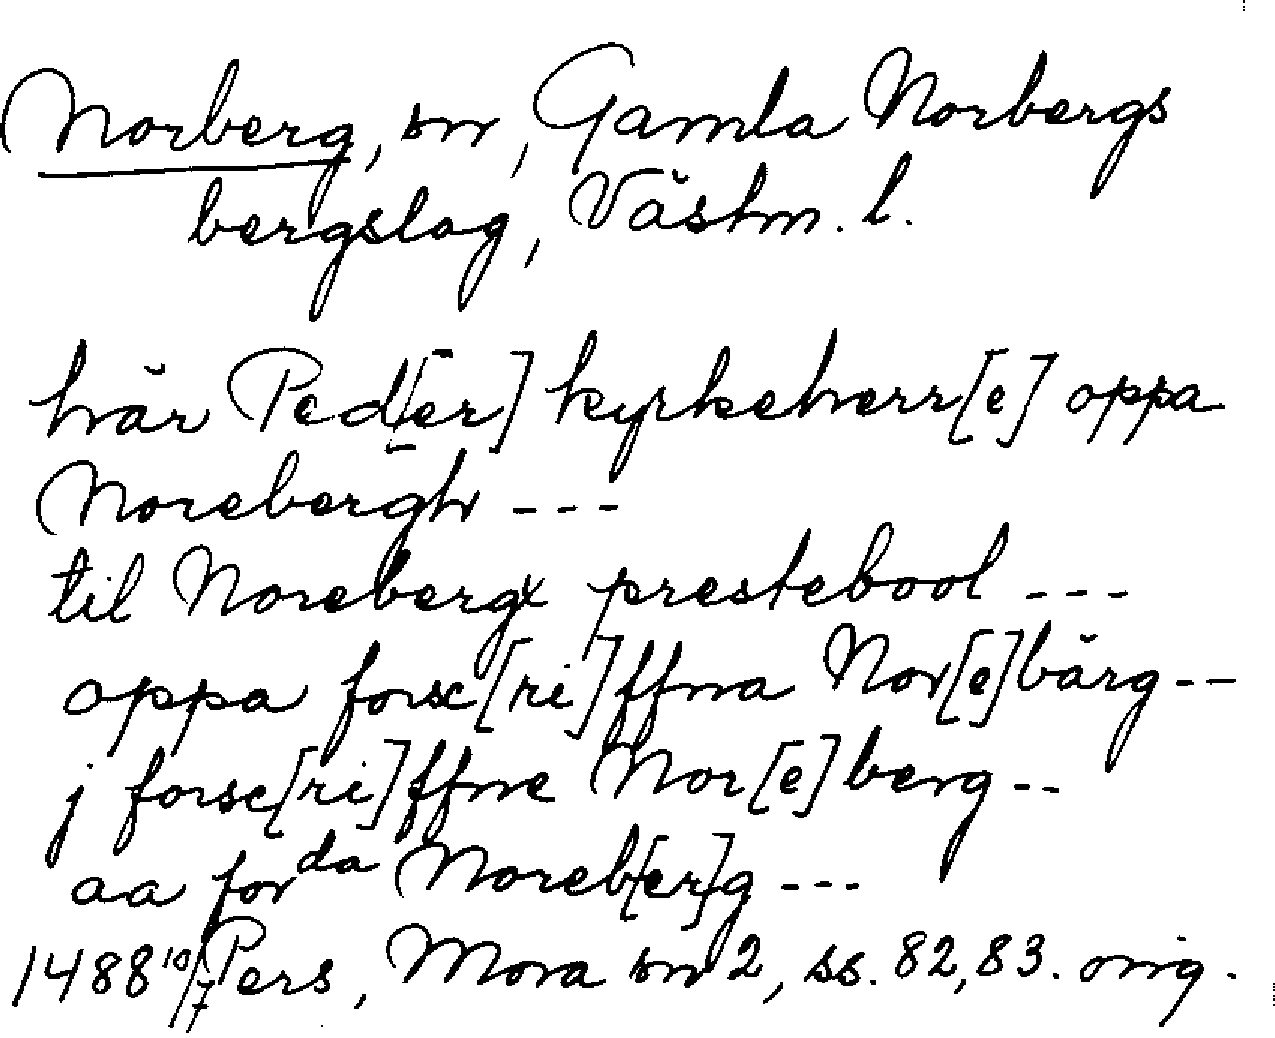 Norberg, sn, Gamla Norbergs
bergslag, Västm. l.
här Ped[er] kyrkeherr[e] oppa
Norebergh ---
til Norebergx prestebool ---
oppa forsc[ri]ffna Nor[e]bärg --
j forsc[ri]ffne Nor[e]berg --
aa forda Noreb[er]g ---
1488 10/7 Pers, Mora sn 2, ss. 82, 83. orig.